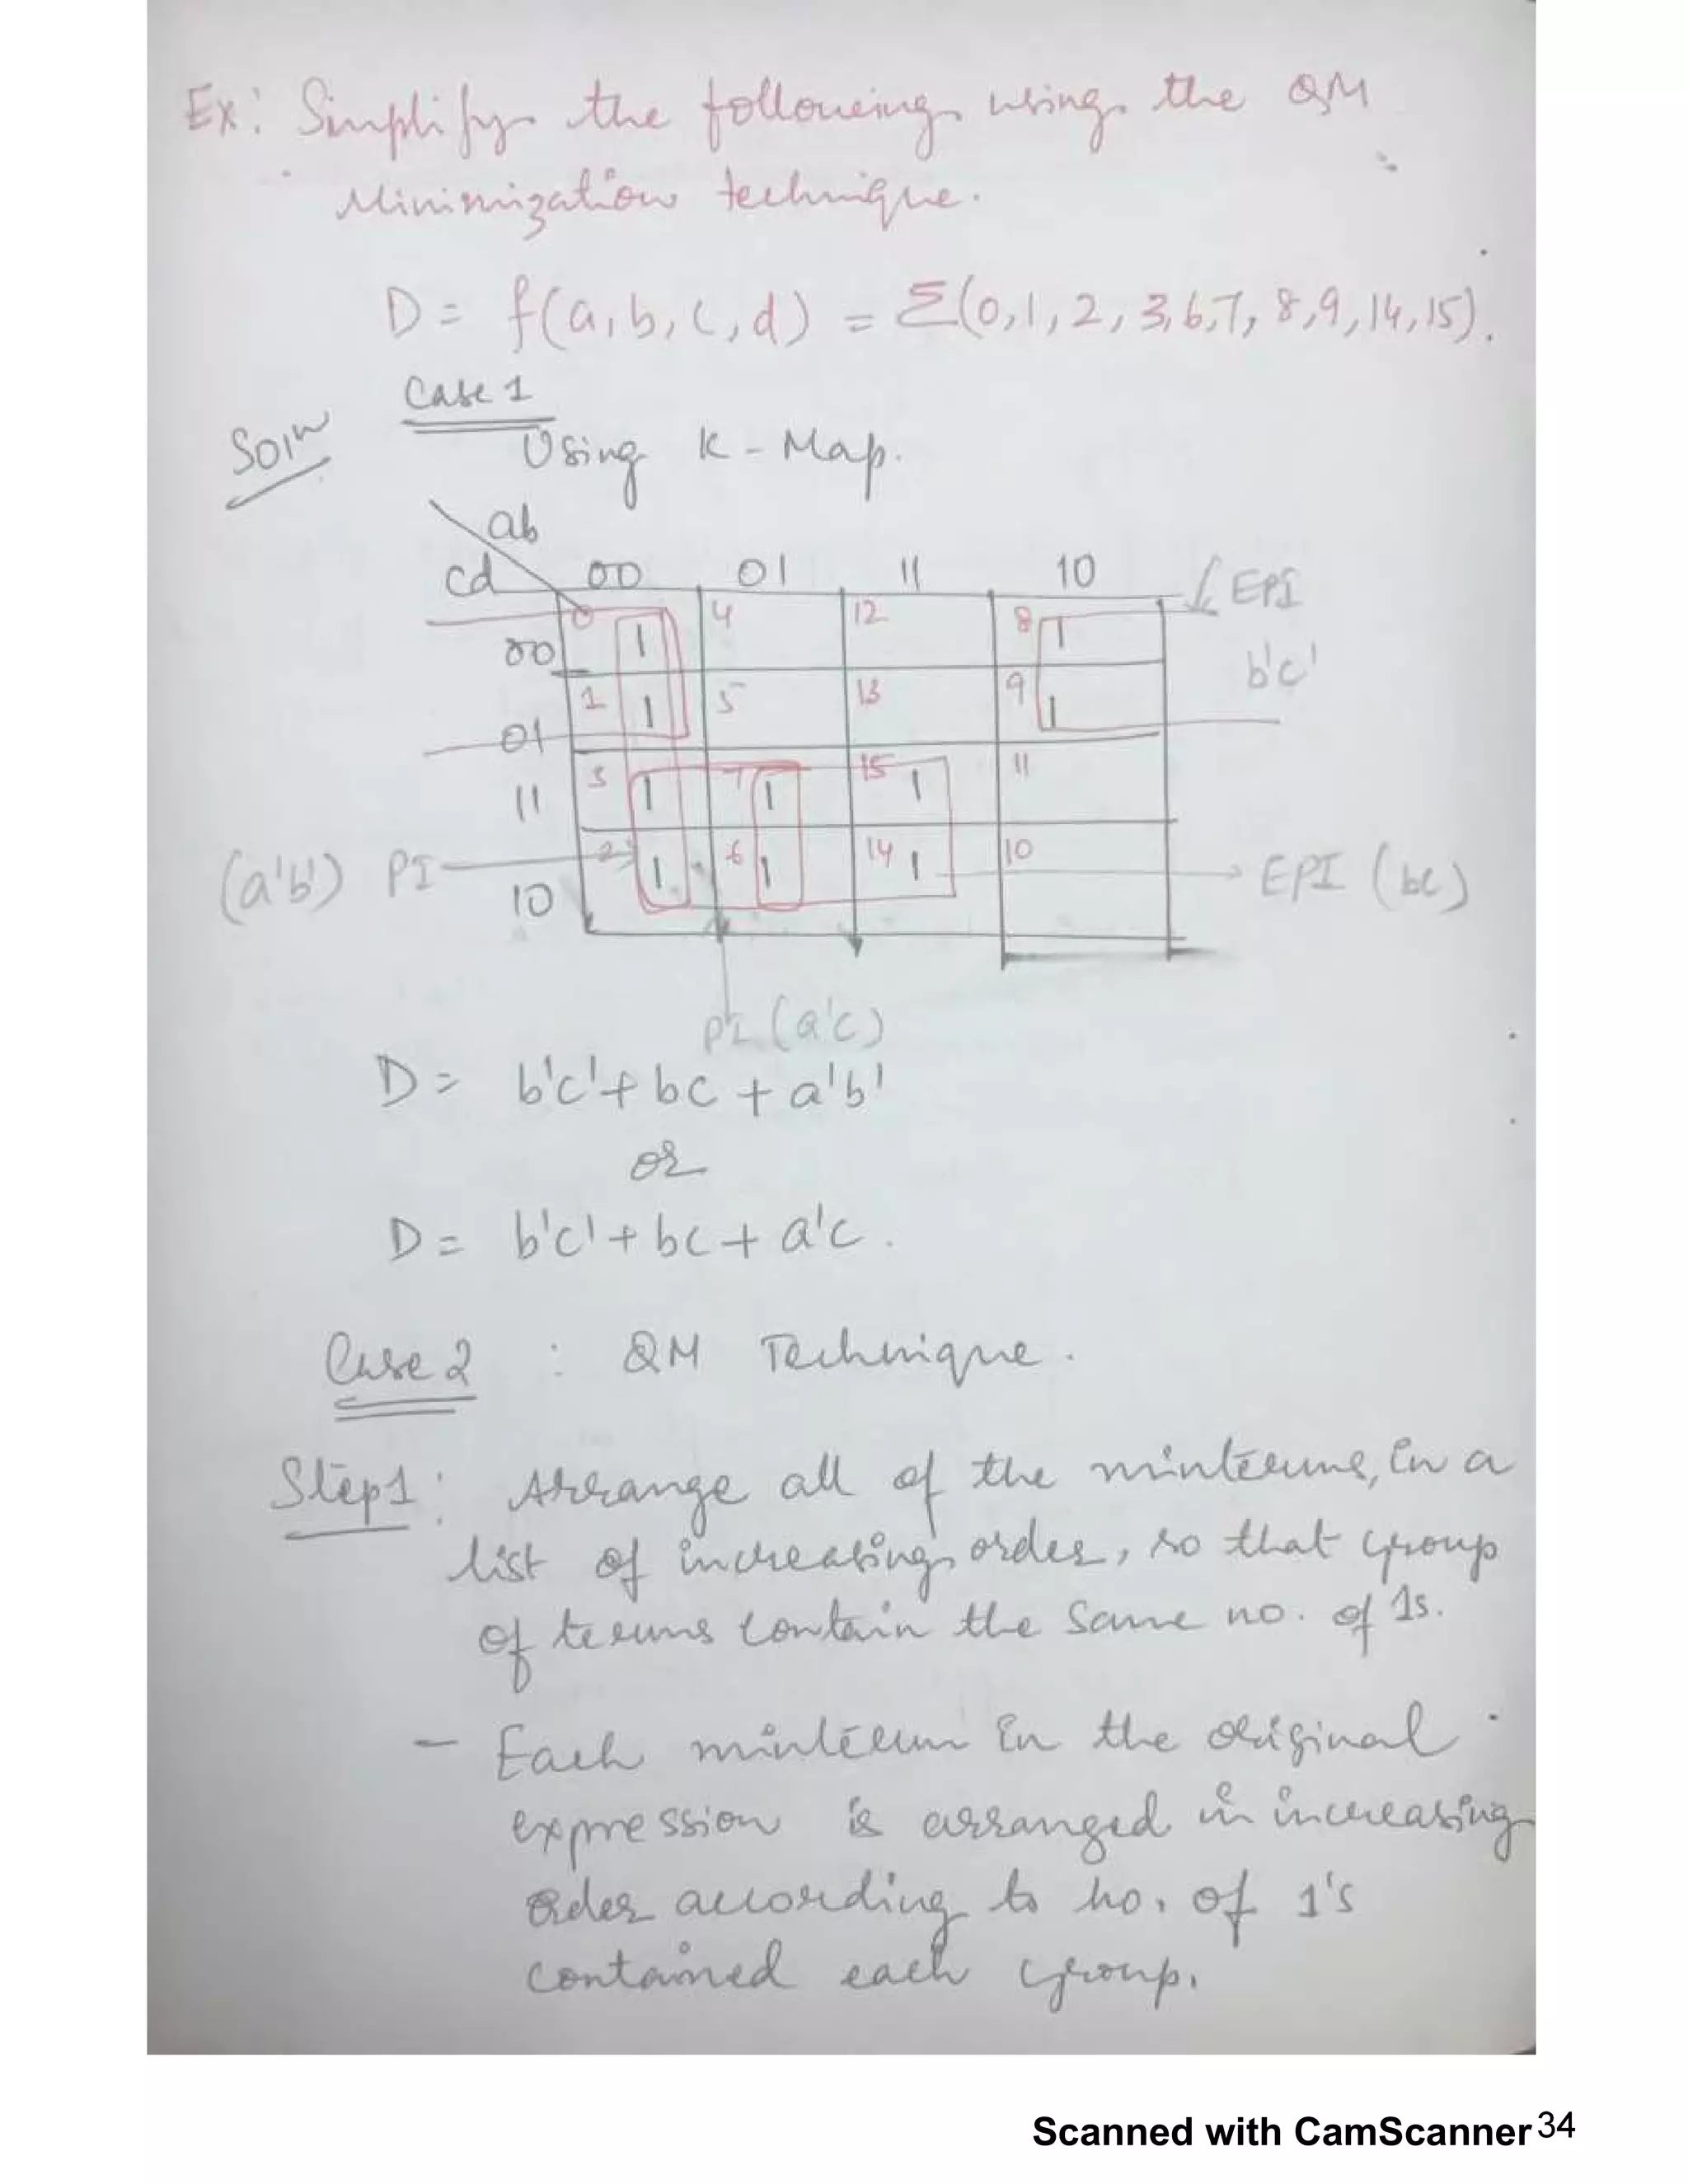 Ex: Simplify the following using the QM
Minimization technique.
D = f(a,b,c,d) = Σ(0,1,2,3,6,7,8,9,14,15).
Soln
Case 1
Using K-Map.
ab
cd 00 01 11 10
EPI
00 0 1 4 12 8 1
b'c'
01 1 1 5 13 9 1
11 3 1 7 1 15 1 11
(a'b') PI 10 2 1 6 1 14 1 10 EPI (bc)
PI (a'c)
D = b'c' + bc + a'b'
or
D = b'c' + bc + a'c.
Case 2 : QM Technique.
Step1: Arrange all of the minterms, in a
list of increasing order, so that group
of terms contain the same no. of 1s.
- Each minterm in the original
expression is arranged in increasing
order according to no. of 1's
contained each group.
Scanned with CamScanner 34